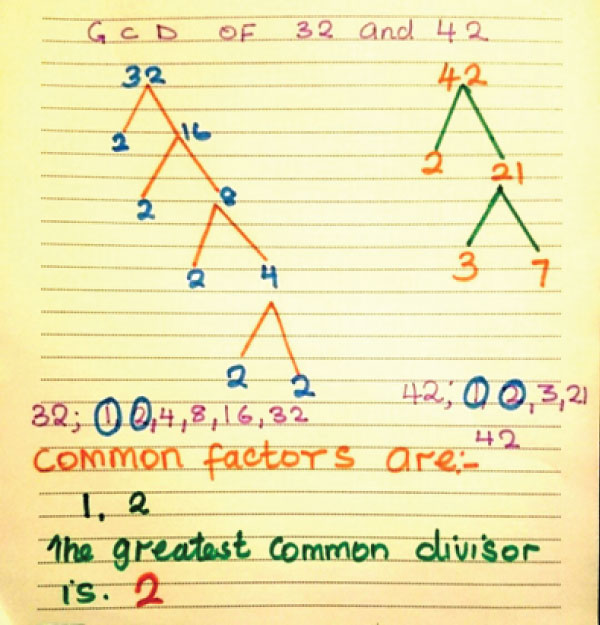 GCD OF 32 and 42
32 42
2 16
2 21
2 8
3 7
2 4
2 2
42; 1 2, 3, 21
32; 1 2, 4, 8, 16, 32
42
Common factors are:-
1, 2
The greatest common divisor
is. 2